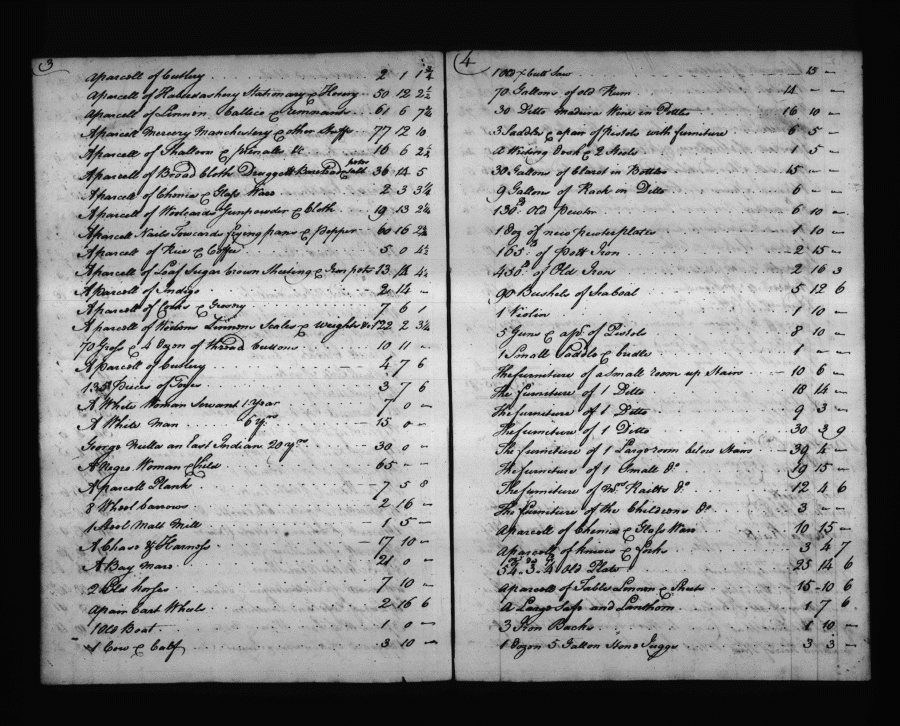 3
A parcell of Cutlery 2 1 1 3/4
A parcell of Haberdashery Stationary & Hosiery 50 12 2 1/2
A parcell of Linnen Callico & remnants 61 6 7 3/4
A parcell Mercery Manchestery & other Stuffs 77 12 10
A parcell of Shalloon & &c 10 6 2 1/2
A parcell of Broad Cloth Druggett 36 14 5
A parcell of Chenia & Glass Ware 2 3 3 1/4
A parcell of Woolcards Gunpowder & Cloth 19 13 2 1/4
A parcell Nails Towcards frying pans & pepper 60 16 2 3/4
A parcell of Rice & Coffee 5 0 4 1/2
A parcell of Loaf Sugar brown Sheeting & Iron pots 13 14 4 1/2
A parcell of Indigo 2 14 —
A parcell of & 7 6 1
A parcell of Linnen Scales & Weights &c 122 2 3 1/4
70 Gross & 4 Dozn of thread buttons 10 11 —
A parcell of Cutlery 4 7 6
135 Pieces of 3 7 6
A White Woman Servant 1 Year 7 0 —
A White Man 6 yrs 15 0 —
George Mills an East Indian 20 yrs 30 0 —
A Negro Woman & Child 65 — —
A parcell Plank 7 5 8
8 Wheel barrows 2 16 —
1 Steel Malt Mill 1 5 —
A Chase & Harness 17 10 —
A Bay Mare 21 0 —
2 Old horses 7 10 —
A pair Cart Wheels 2 16 6
1 Old Boat 1 0 —
1 Cow & Calf 3 10 —
4
1 Old X Cutt Saw 15 —
70 Gallons of old Rum 14 — —
30 Ditto Madeira Wine in Bottles 16 10 —
3 Saddles & a pair of pistols with furniture 6 5 —
A Writing Desk & 2 1 5 —
30 Gallons of Claret in Bottles 15 — —
9 Gallons of Rack in Ditto 6 — —
130 lb Old Pewter 6 10 —
1 Doz of new pewter plates 1 10 —
165 lb of Pott Iron 2 15 —
450 lb of Old Iron 2 16 3
90 Bushels of Seacoal 5 12 6
1 Violin 1 10 —
5 Guns & a pr. of Pistols 8 10 —
1 Small Saddle & bridle 1 — —
The furniture of a small room up Stairs 10 6 —
The furniture of 1 Ditto 18 14 —
The furniture of 1 Ditto 9 3 —
The furniture of 1 Ditto 30 3 9
The furniture of 1 Large room below Stairs 39 4 —
The furniture of 1 Small Do 19 15 —
The furniture of Mrs Do 12 4 6
The furniture of the Childrens Do 3 — —
A parcell of Chenia & Glass Ware 10 15 —
A parcell of knives & forks 3 4 7
54 oz 3 dw 4 Old Plate 25 14 6
A parcell of Table Linnen & Sheets 15 10 6
A Large Safe and Lanthorn 1 7 6
3 Iron Backs 1 10 —
1 Dozen 5 Gallon Stone Juggs 3 3 —